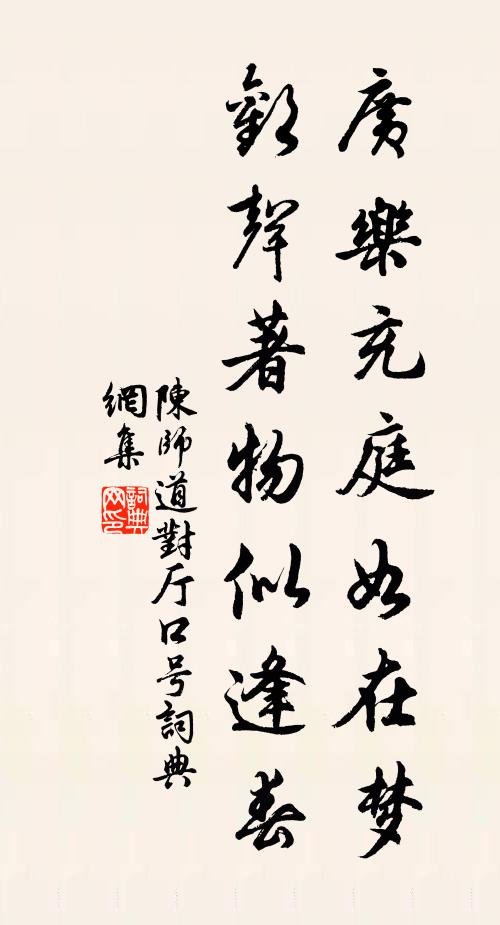 廣樂充庭如在梦
歡聲著物似逢春
陳師道對厅口号詞典
網集
詞典网印